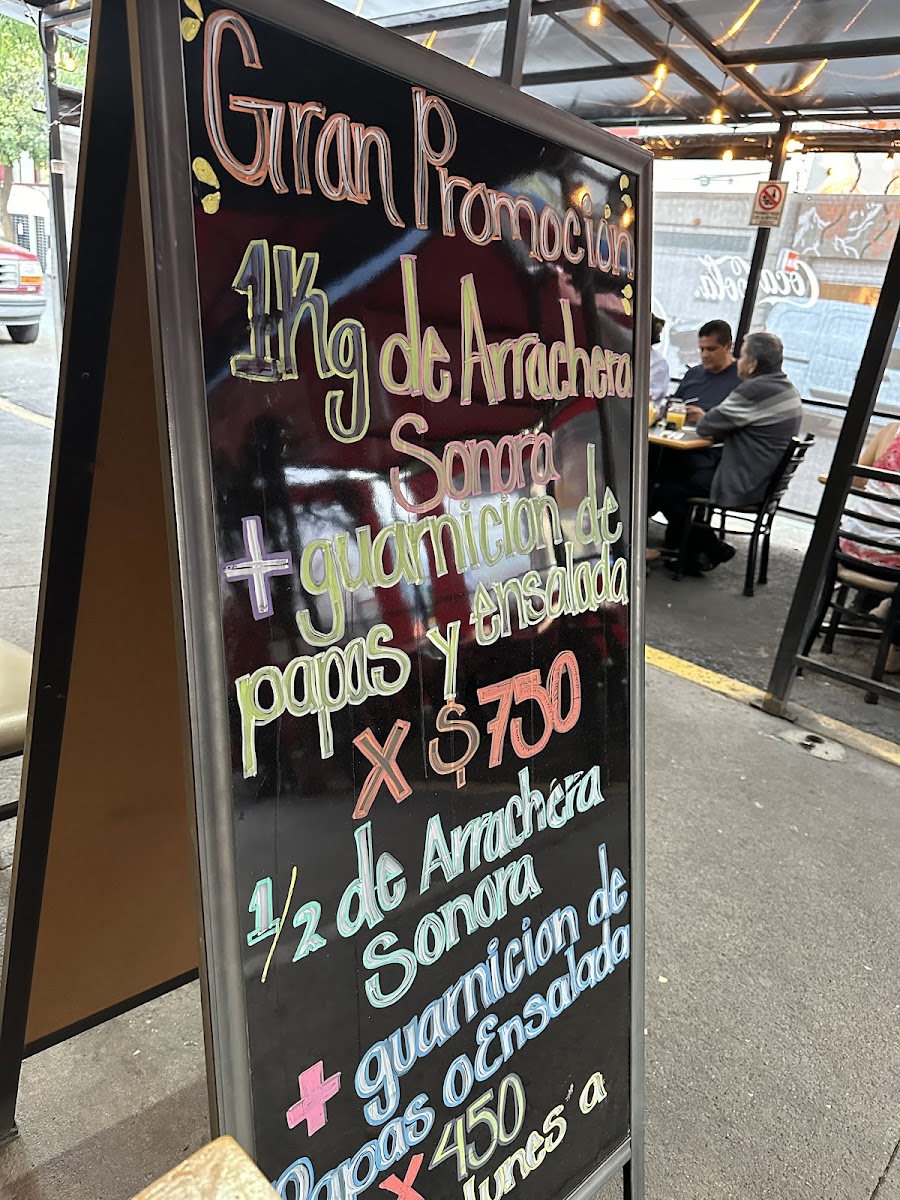 Gran Promoción
1Kg de Arrachera
Sonora
+ guarnicion de
papas y ensalada
x $750
1/2 de Arrachera
Sonora
+ guarnicion de
Papas o Ensalada
x 450
lunes a
Coca-Cola.